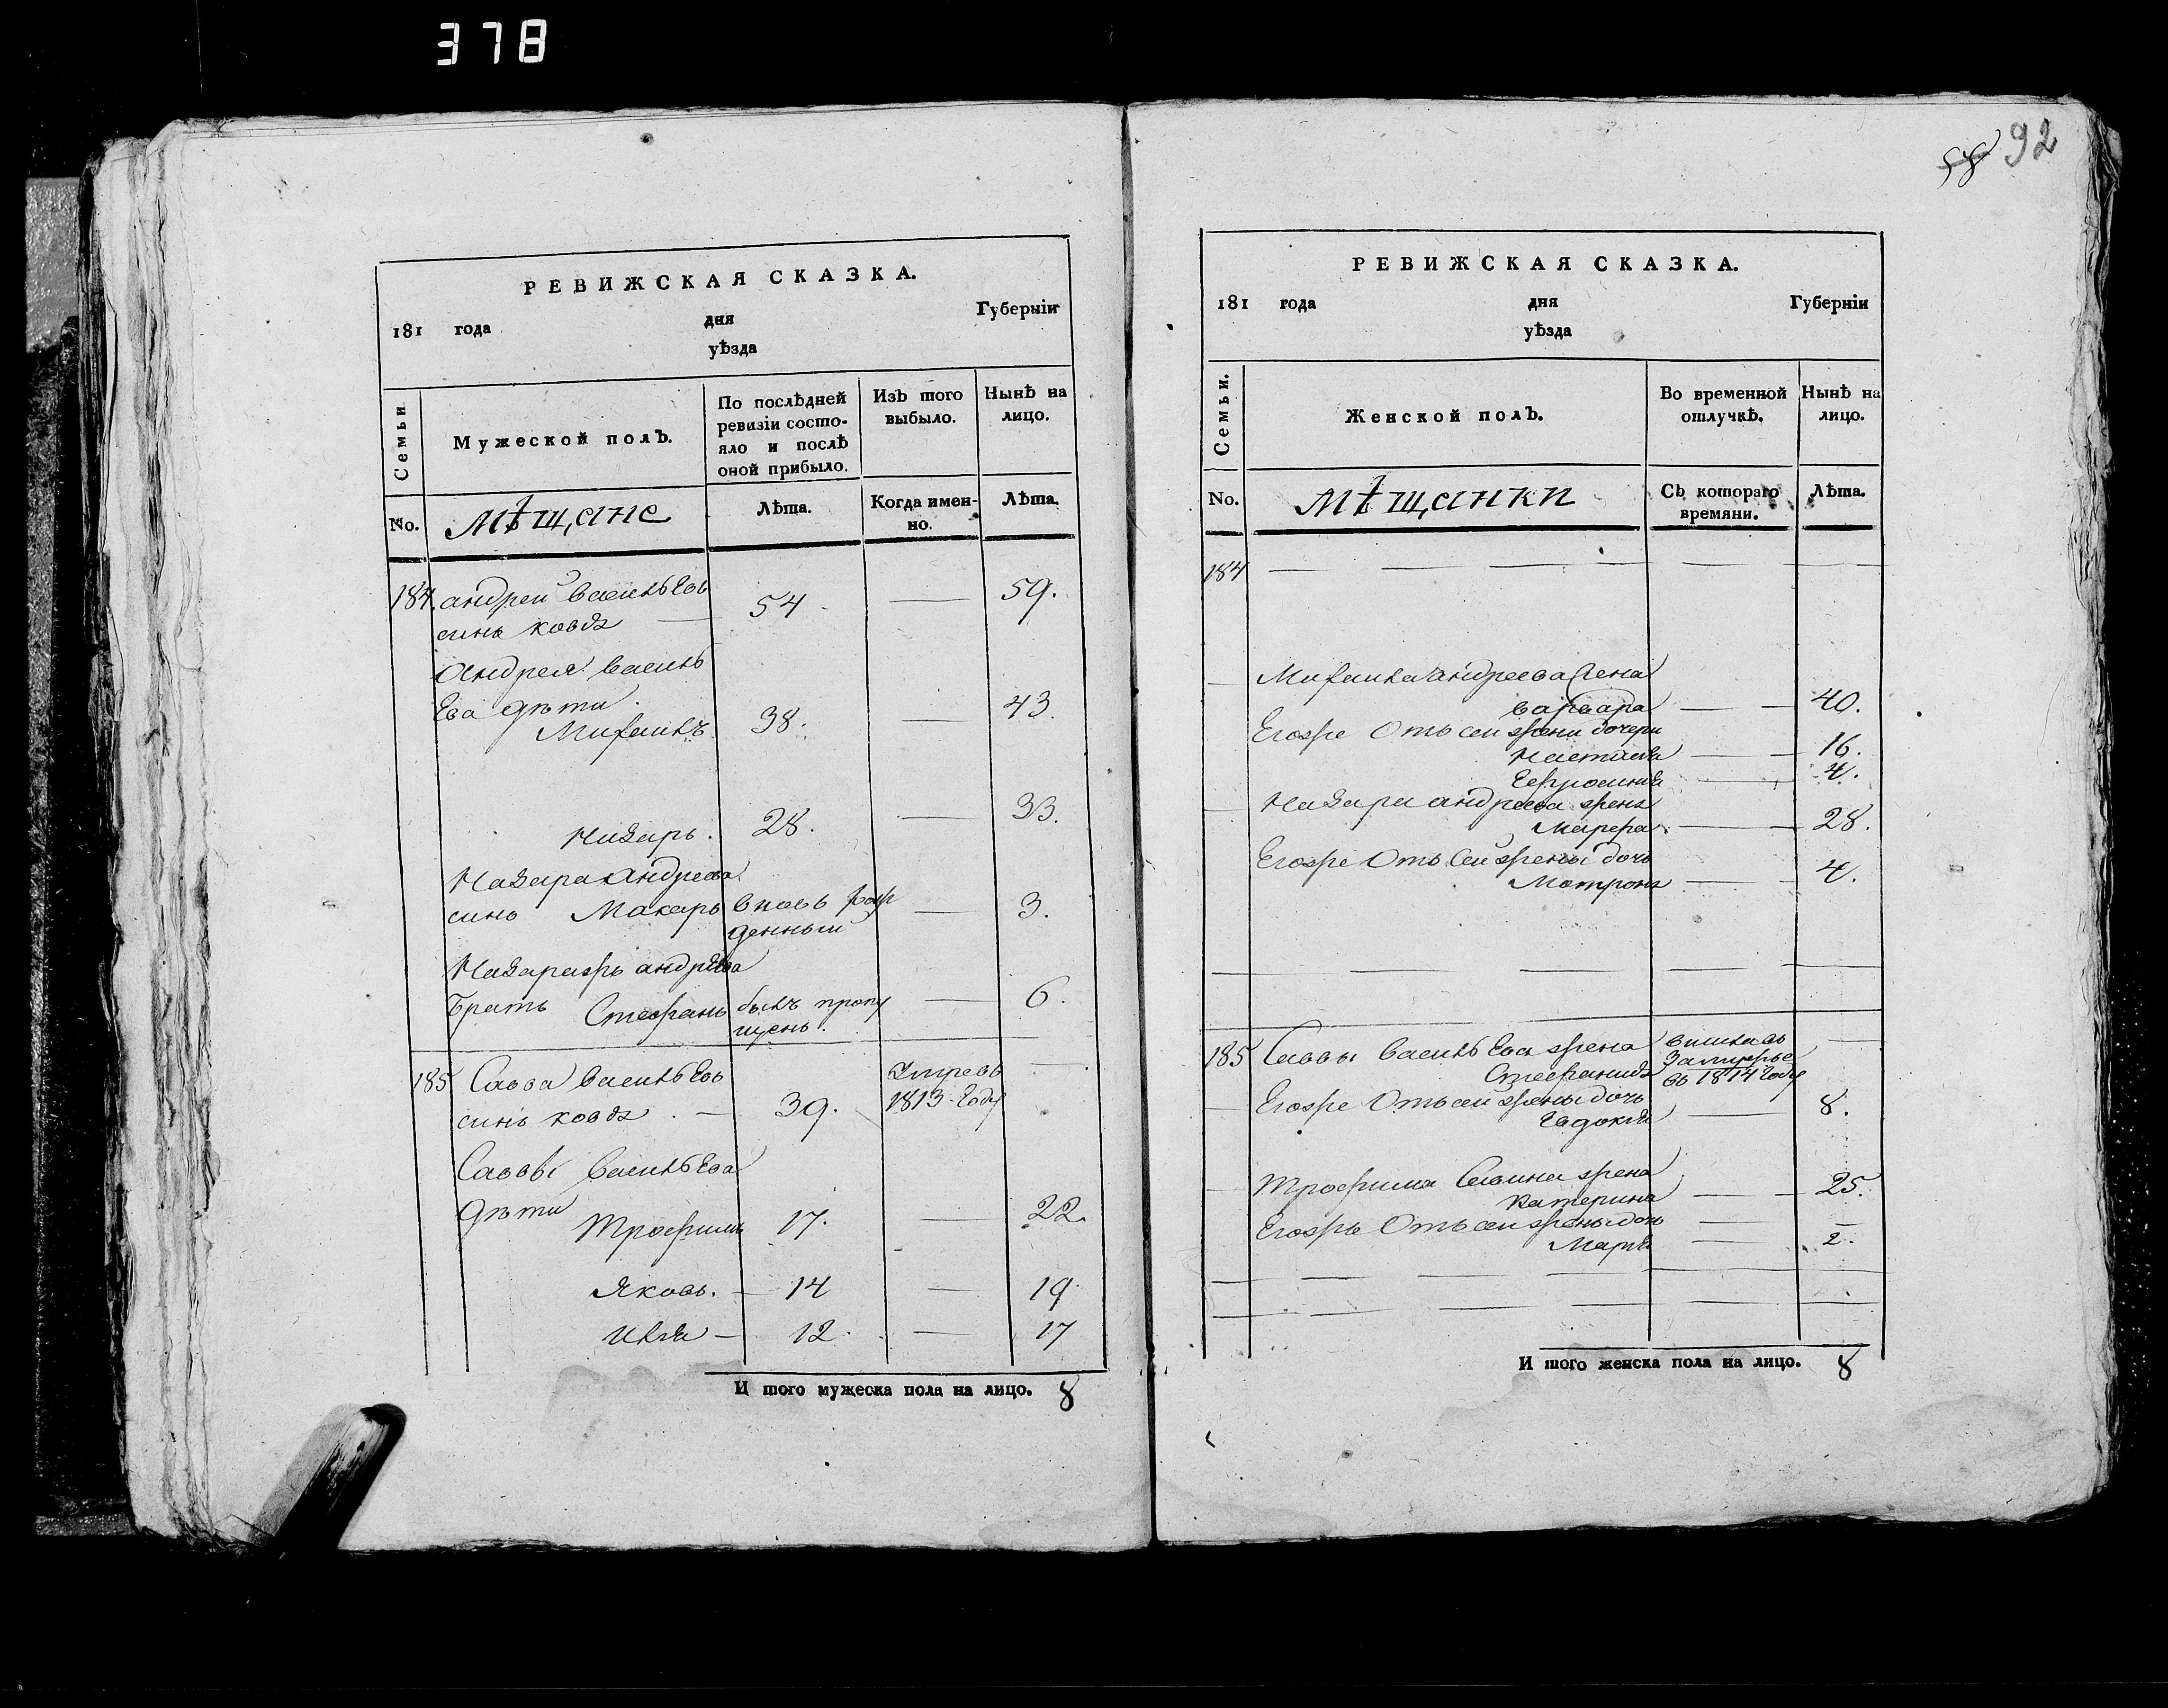 378
РЕВИЖСКАЯ СКАЗКА.
181 года дня Губерніи
уѣзда
Семьи
Мужеской полъ.
По послѣдней ревизіи состо-
яло и послѣ оной прибыло.
Изъ того выбыло.
Нынѣ на лицо.
No.
мѣщане
Лѣта.
Когда имен-
но.
Лѣта.
184. андрей васильевъ 59.
синь ковда — 54 —
Андрея василь
ева дѣти.
Михаилъ 38. — 43.
Назаръ. 28. — 33.
Назара андреева
синъ Макаръ вновь рож — 3.
денный
Назара жъ андреева
братъ Стефанъ былъ пропу — 6.
щенъ.
185 Савва васильевъ умре въ —
синь ковда — 39. 1813 году
Саввы васильева
дѣти
Трофимъ 17. — 22.
Яковъ. — 14 — 19.
Илья — 12. — 17
И того мужеска пола на лицо. 8
58 92
РЕВИЖСКАЯ СКАЗКА.
181 года дня Губерніи
уѣзда
Семьи.
Женской полъ.
Во временной отлучкѣ.
Нынѣ на лицо.
No.
мѣщанки
Съ котораго времяни.
Лѣта.
184
Михаила андреева жена
варвара — 40.
Егожре отъ сей жени дочери
Настасія — 16.
Ефросинія — 4.
Назара андреева жена
Марфа. — 28.
Егожре отъ сей жены дочь
Мотрона — 4.
185 Саввы васильева жена вишла въ —
Стефанида замужье
въ 1814 году
Егожре отъ сей жены дочь
Евдокия — 8.
Трофима Савина жена
Катерина — 25.
Егожръ отъ сей жены дочь
Марія — 2.
И того женска пола на лицо. 8